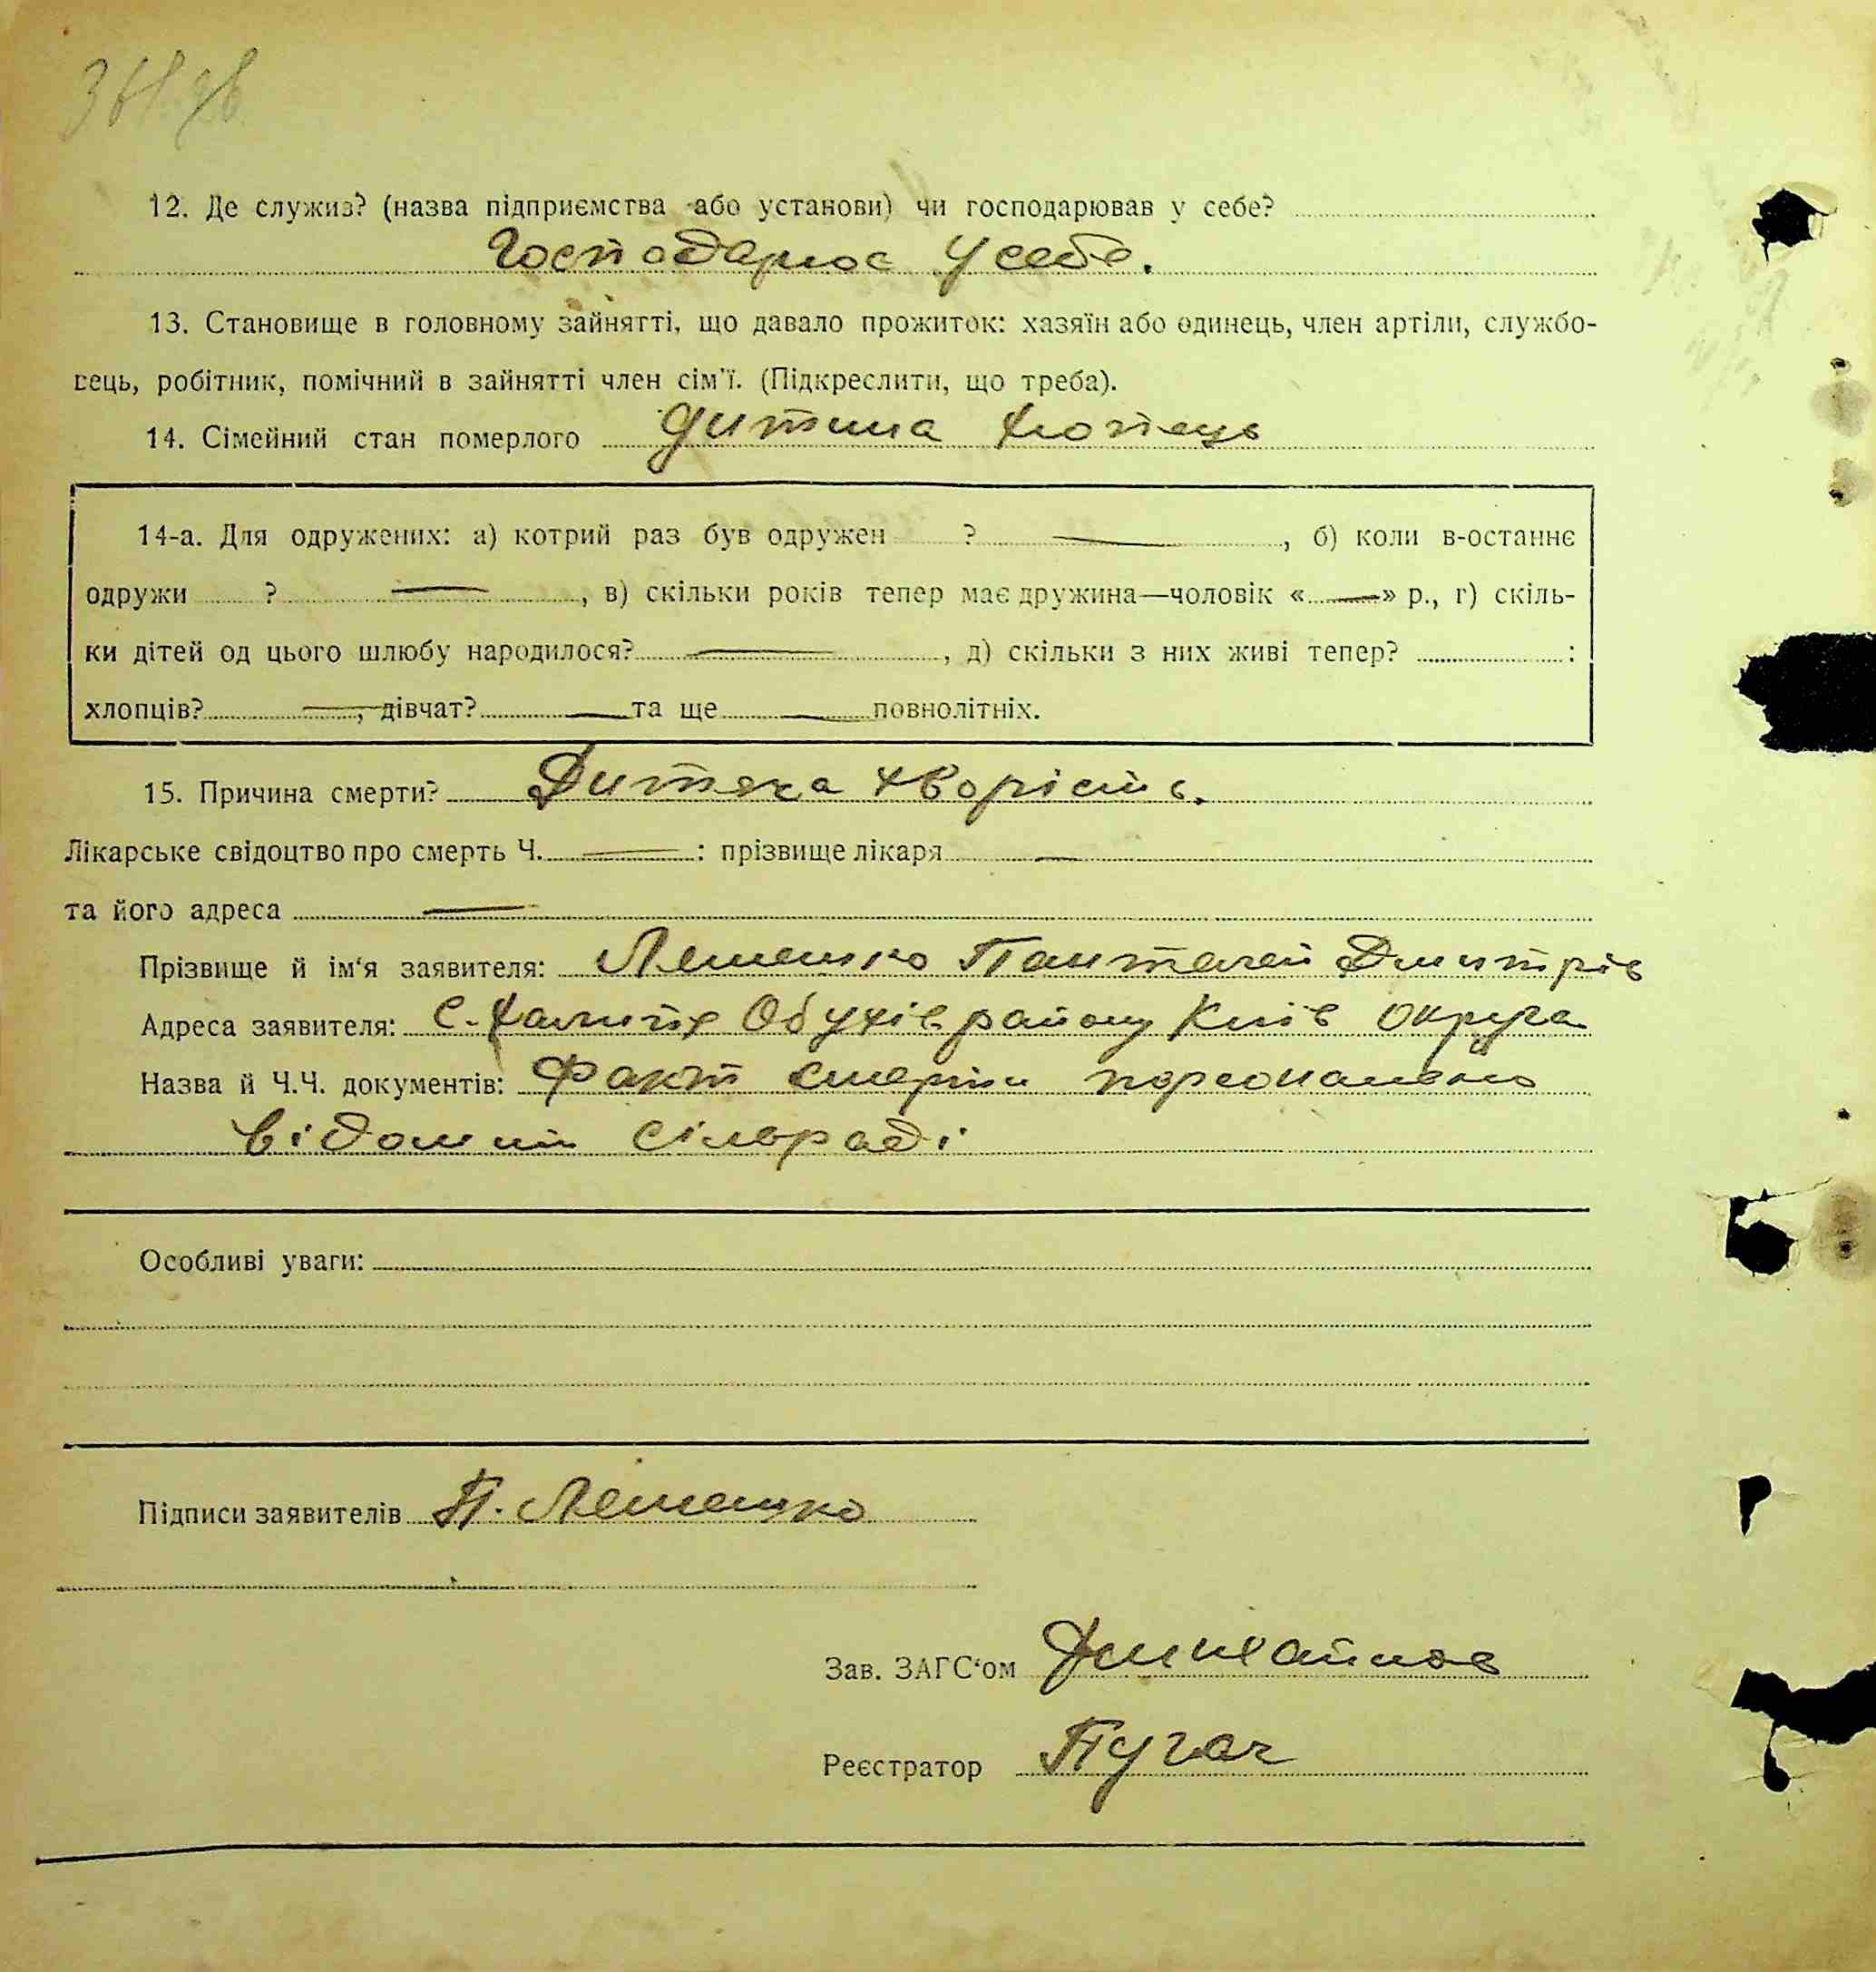 12. Де служив? (назва підприємства або установи) чи господарював у себе?
Господарює у себе.
13. Становище в головному зайнятті, що давало прожиток: хазяїн або одинець, член артіли, службо-
вець, робітник, помічний в зайнятті член сім'ї. (Підкреслити, що треба).
14. Сімейний стан померлого дитина хлопець
14-а. Для одружених: а) котрий раз був одружен ? — , б) коли в-останнє
одружи ? — , в) скільки років тепер має дружина—чоловік «—» р., г) скіль-
ки дітей од цього шлюбу народилося? — , д) скільки з них живі тепер? :
хлопців? —, дівчат? — та ще — повнолітніх.
15. Причина смерти? Дитяча хворість.
Лікарське свідоцтво про смерть Ч. — : прізвище лікаря —
та його адреса —
Прізвище й ім'я заявителя: Лемешко Пантелей Дмитрів
Адреса заявителя: с. Халип'я Обухів району Київ Округа
Назва й Ч.Ч. документів: Факт смерти персонально
відомий сільраді
Особливі уваги:
Підписи заявителів П. Лемешко
Зав. ЗАГС'ом
Реєстратор Пугач